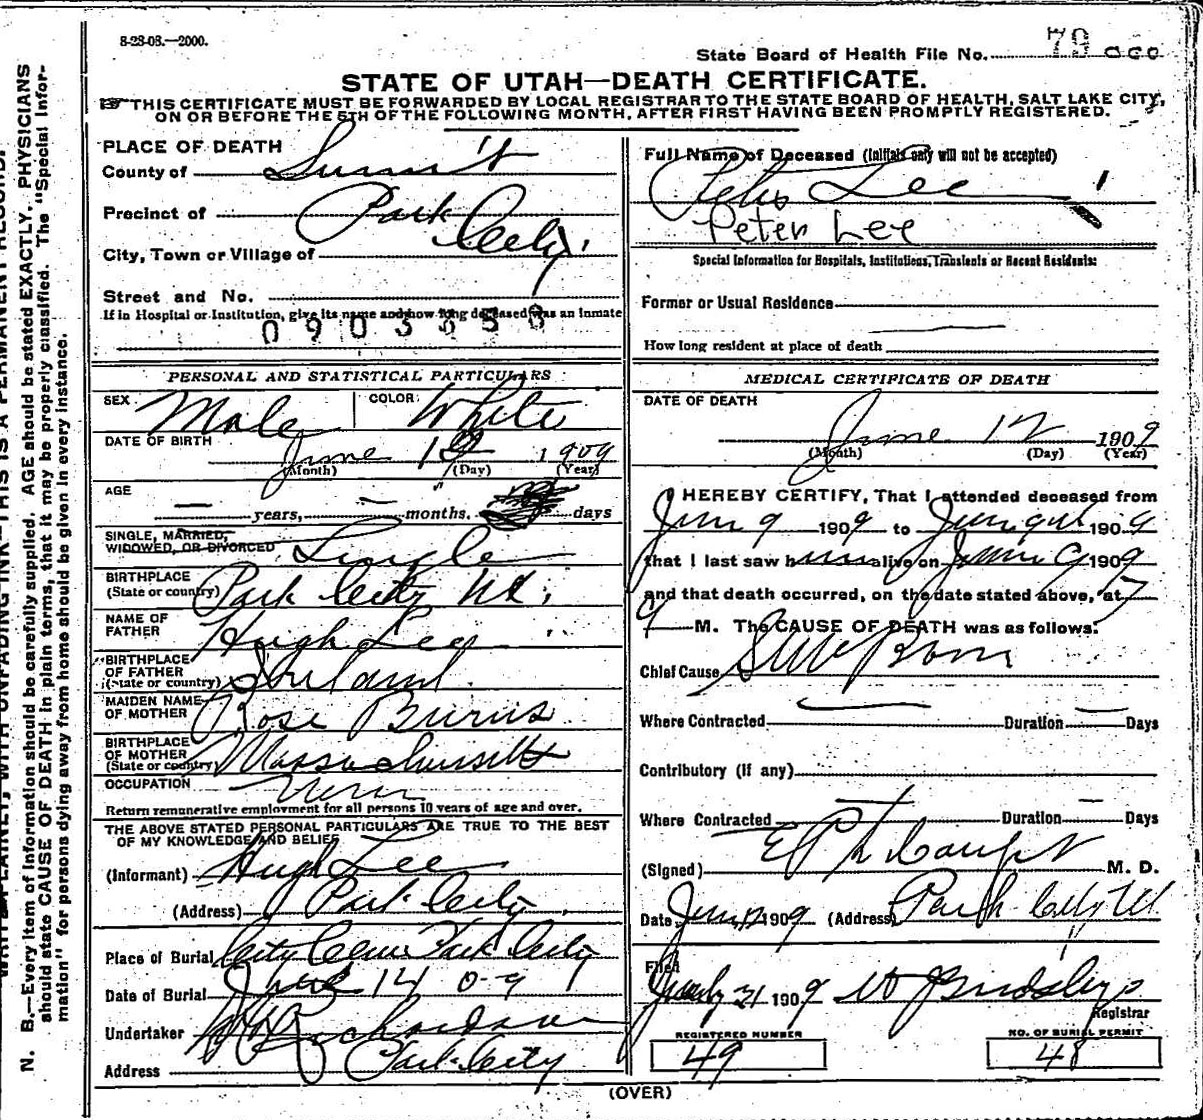 8-28-08.—2000.
State Board of Health File No. 79
STATE OF UTAH—DEATH CERTIFICATE.
THIS CERTIFICATE MUST BE FORWARDED BY LOCAL REGISTRAR TO THE STATE BOARD OF HEALTH, SALT LAKE CITY,
ON OR BEFORE THE 5TH OF THE FOLLOWING MONTH, AFTER FIRST HAVING BEEN PROMPTLY REGISTERED.
PLACE OF DEATH
County of Summit
Precinct of Park
City, Town or Village of City.
Street and No.
If in Hospital or Institution, give its name and how long deceased was an inmate
PERSONAL AND STATISTICAL PARTICULARS
SEX Male COLOR White
DATE OF BIRTH
June 12 1909
(Month) (Day) (Year)
AGE
— years, — months. days
SINGLE, MARRIED,
WIDOWED, OR DIVORCED Single
BIRTHPLACE
(State or country) Park City Ut.
NAME OF
FATHER Hugh Lee
BIRTHPLACE
OF FATHER
(State or country) Ireland
MAIDEN NAME
OF MOTHER Rose Burns
BIRTHPLACE
OF MOTHER
(State or country) Massachusetts
OCCUPATION
Return remunerative employment for all persons 10 years of age and over.
THE ABOVE STATED PERSONAL PARTICULARS ARE TRUE TO THE BEST
OF MY KNOWLEDGE AND BELIEF
(Informant) Hugh Lee
(Address) Park City
Place of Burial City Cem. Park City
Date of Burial June 14 09
Undertaker Richardson
Address Park City
Full Name of Deceased (Initials only will not be accepted)
Peter Lee
Peter Lee
Special Information for Hospitals, Institutions, Transients or Recent Residents:
Former or Usual Residence
How long resident at place of death
MEDICAL CERTIFICATE OF DEATH
DATE OF DEATH
June 12 1909
(Month) (Day) (Year)
I HEREBY CERTIFY, That I attended deceased from
June 9 1909 to June 1909
that I last saw him alive on June 9 1909
and that death occurred, on the date stated above, at 7
M. The CAUSE OF DEATH was as follows:
Chief Cause Still Born
Where Contracted — Duration — Days
Contributory (if any)
Where Contracted — Duration — Days
(Signed) M. D.
Date June 1909 (Address) Park City Ut
Filed
July 21 1909
Registrar
REGISTERED NUMBER
49
NO. OF BURIAL PERMIT
48
(OVER)
N. B.—Every item of information should be carefully supplied. AGE should be stated EXACTLY. PHYSICIANS
should state CAUSE OF DEATH in plain terms, that it may be properly classified. The "Special Infor-
mation" for persons dying away from home should be given in every instance.